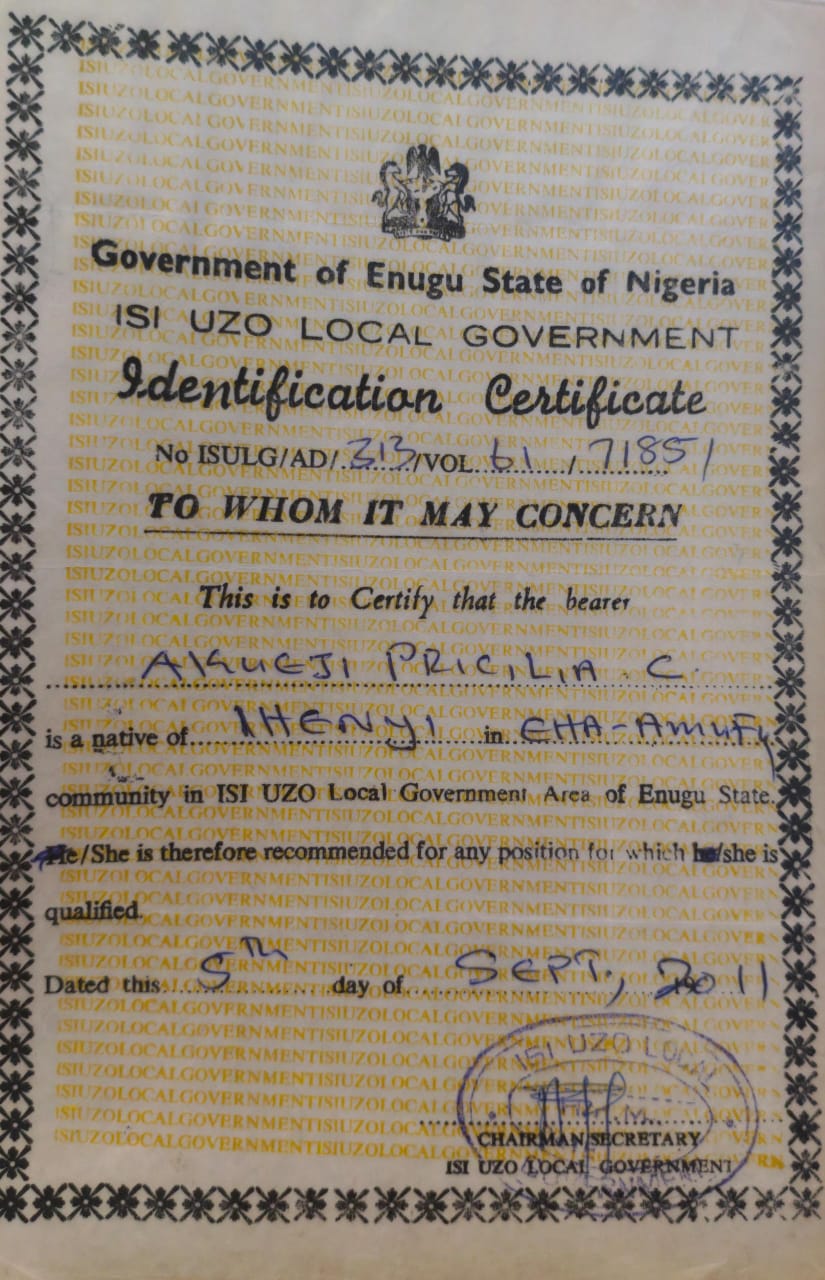 Government of Enugu State of Nigeria
ISI UZO LOCAL GOVERNMENT
Identification Certificate
No ISULG/AD/.313/VOL 61 / 71851
TO WHOM IT MAY CONCERN
This is to Certify that the bearer
AKUEJI PRICILIA C.
is a native of IHENYI in EHA-AMUFU
community in ISI UZO Local Government Area of Enugu State.
He/She is therefore recommended for any position for which he/she is
qualified.
Dated this 5TH day of SEPT., 2011
ISI UZO LOCAL
CHAIRMAN/SECRETARY
ISI UZO LOCAL GOVERNMENT
GOVERNMENT